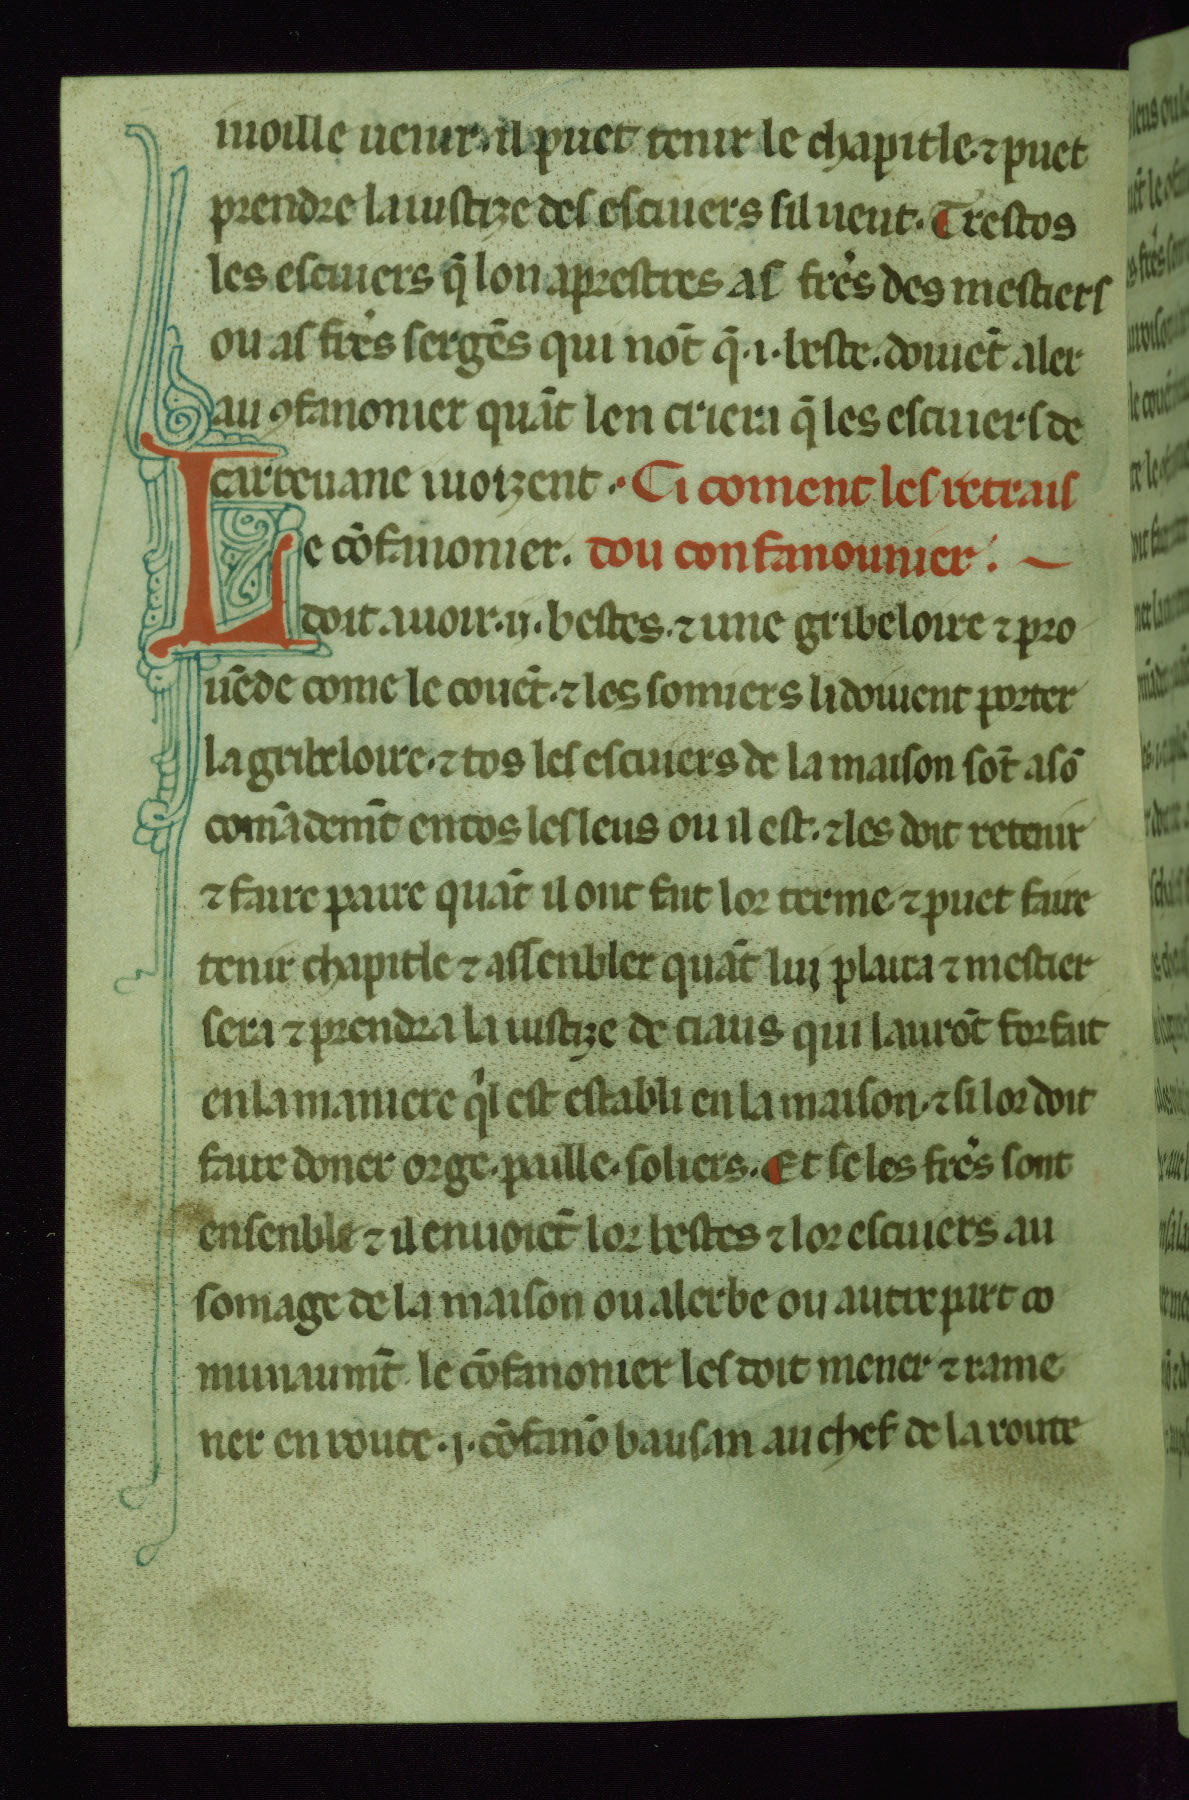 iuoille uenir. il puet tenir le chapitle. ⁊ puet
prendre la iustize des escuiers sil ueut. Trestos
les escuiers q̃ lon aprestres as frẽs des mestiers
ou as frẽs sergẽs qui nõt q̃ .i. beste. doiuẽt aler
au ꝯfanonier quãt len criera q̃ les escuiers de
carreuane iuoizent. Ci coment les retrais
Le cõfanonier. dou confanounier.
doit auoir .ii. bestes. ⁊ une gribeloire ⁊ pro
uẽde come le couẽt. ⁊ les somiers li doiuent porter
la gribeloire. ⁊ tos les escuiers de la maison sõt a sõ
comãdemt̃ en tos les leus ou il est. ⁊ les doit retenir
⁊ faire paire quãt il ont fait lor terme. ⁊ puet faire
tenir chapitle ⁊ assenbler quãt lui plaira ⁊ mestier
sera ⁊ prendra la iustize de ciaus qui laurõt forfait
en la maniere q̾l est establi en la maison. ⁊ si lor doit
faire doner orge. paille. soliers. Et se les frẽs sont
ensenble ⁊ il enuoiẽt lor bestes ⁊ lor escuiers au
somage de la maison ou alerbe ou autre part co
munaumt̃ le cõfanonier les doit mener ⁊ rame
ner en route. j. cõfanõ bausan au chef de la route